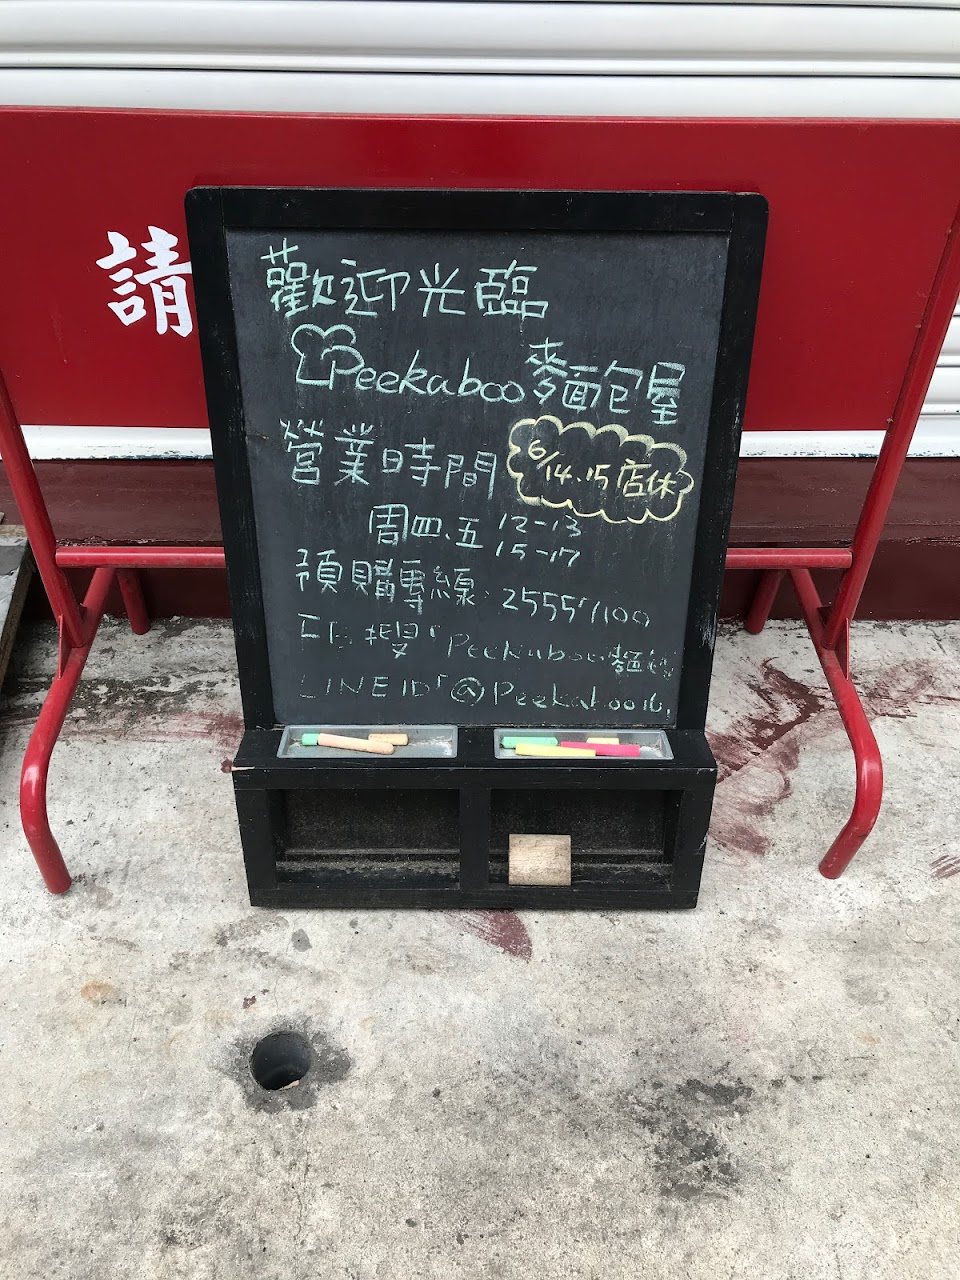 請
歡迎光臨
Peekaboo麵包屋
營業時間
6/14.15店休
周四.五 12-13
15-17
預購專線:25557100
FB搜「Peekaboo麵包
LINE ID「@Peekaboo16」